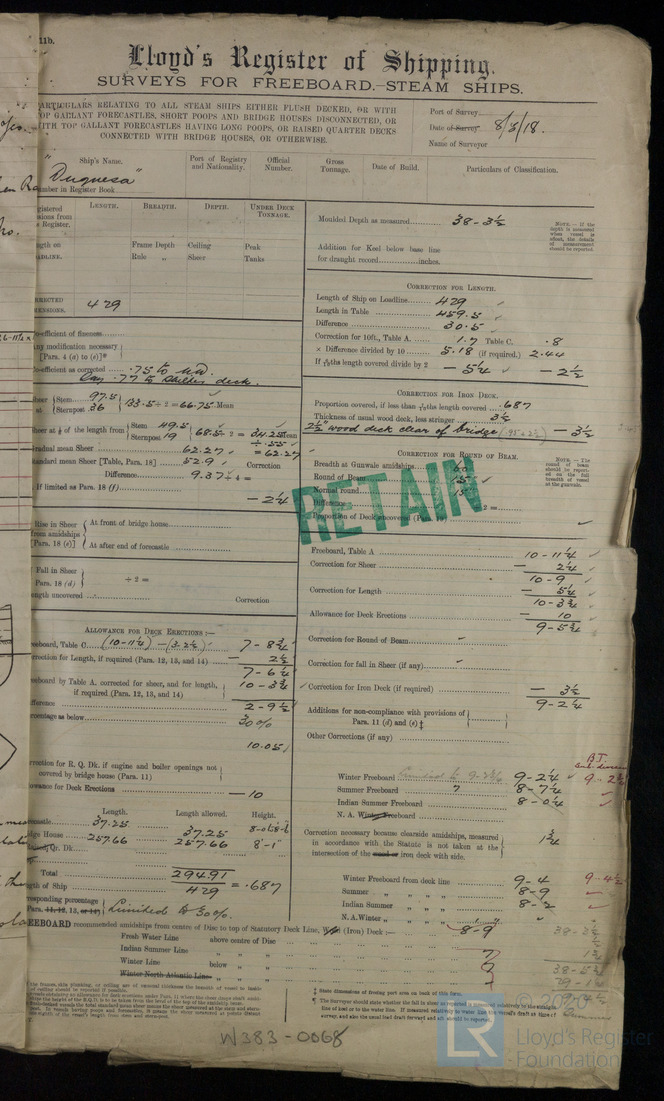 11b.
Lloyd's Register of Shipping.
SURVEYS FOR FREEBOARD.—STEAM SHIPS.
PARTICULARS RELATING TO ALL STEAM SHIPS EITHER FLUSH DECKED, OR WITH
TOP GALLANT FORECASTLES, SHORT POOPS AND BRIDGE HOUSES DISCONNECTED, OR
WITH TOP GALLANT FORECASTLES HAVING LONG POOPS, OR RAISED QUARTER DECKS
CONNECTED WITH BRIDGE HOUSES, OR OTHERWISE.
Port of Survey
Date of Survey 8/3/18.
Name of Surveyor
Ship's Name.
Port of Registry and Nationality.
Official Number.
Gross Tonnage.
Date of Build.
Particulars of Classification.
"Duquesa"
Number in Register Book
LENGTH. BREADTH. DEPTH. UNDER DECK TONNAGE.
Frame Depth Ceiling Peak
Rule " Sheer Tanks
429
Co-efficient of fineness
Any modification necessary
[Para. 4 (a) to (e)]*
Co-efficient as corrected .75 to U.D.
Say .77 to shelter deck.
Sheer at Stem 97.5
Sternpost 36
133.5 ÷ 2 = 66.75 Mean
Sheer at 1/8 of the length from Stem 49.5
Sternpost 19
68.5 ÷ 2 = 34.25 Mean
÷ .55
Gradual mean Sheer 62.27 = 62.27
Standard mean Sheer [Table, Para. 18] 52.9 Correction
Difference 9.37 ÷ 4 =
If limited as Para. 18 (f)
- 2 1/4
Rise in Sheer from amidships [Para. 18 (e)]
At front of bridge house
At after end of forecastle
Fall in Sheer
Para. 18 (d)
÷ 2 =
Length uncovered
Correction
ALLOWANCE FOR DECK ERECTIONS:—
Freeboard, Table C (10-11 1/4) (3-2 1/2) 7-8 3/4
Correction for Length, if required (Para. 12, 13, and 14) - 2 1/2
7-6 1/4
Freeboard by Table A. corrected for sheer, and for length,
if required (Para. 12, 13, and 14) 10-3 3/4
Difference 2-9 1/2
Percentage as below 30%
10.05
Correction for R. Q. Dk. if engine and boiler openings not
covered by bridge house (Para. 11)
Allowance for Deck Erections - 10
Length. Length allowed. Height.
Forecastle 37.25 37.25
Bridge House 257.66 257.66 8'-1"
Total 294.91
Length of Ship 429 = .687
Corresponding percentage
Para. 11, 12, 13, or 14
Limited to 30%.
Moulded Depth as measured 38-3 1/2
Addition for Keel below base line
for draught record inches.
NOTE.—If the depth is measured when vessel is afloat, the details of measurement should be reported.
CORRECTION FOR LENGTH.
Length of Ship on Loadline 429
Length in Table 459.5
Difference 30.5
Correction for 10ft., Table A. 1.7 Table C. .8
× Difference divided by 10 5.18 (if required.) 2.44
If 6/10ths length covered divide by 2 - 5 1/4 - 2 1/2
CORRECTION FOR IRON DECK.
Proportion covered, if less than 7/10ths length covered .687
Thickness of usual wood deck, less stringer 3 1/2
2 1/2" wood deck clear of bridge - 3 1/2
CORRECTION FOR ROUND OF BEAM.
Breadth at Gunwale amidships 60
Round of Beam 15
Normal round 15
Difference ÷ 2 =
Proportion of Deck uncovered
NOTE.—The round of beam should be reported on the full breadth of vessel at the gunwale.
RETAIN
Freeboard, Table A 10-11 1/4
Correction for Sheer - 2 1/4
10-9
Correction for Length - 5 1/4
10-3 3/4
Allowance for Deck Erections - 10
9-5 3/4
Correction for Round of Beam
Correction for fall in Sheer (if any)
Correction for Iron Deck (if required) - 3 1/2
9-2 1/4
Additions for non-compliance with provisions of
Para. 11 (d) and (e) ‡
Other Corrections (if any)
Winter Freeboard 9-2 1/4
Summer Freeboard 7 8-7 1/4
Indian Summer Freeboard 8-0 1/4
N. A. Winter Freeboard
Correction necessary because clearside amidships, measured
in accordance with the Statute is not taken at the
intersection of the wood or iron deck with side. 1 3/4
Winter Freeboard from deck line 9-4
Summer " " " " 8-9
Indian Summer " " " 8-2
N. A. Winter " " " "
FREEBOARD recommended amidships from centre of Disc to top of Statutory Deck Line, Wood (Iron) Deck:— 8-9
Fresh Water Line above centre of Disc
Indian Summer Line " " 7
Winter Line below " " 7
Winter North Atlantic Line " "
W383-0068
LR
Lloyd's Register
Foundation